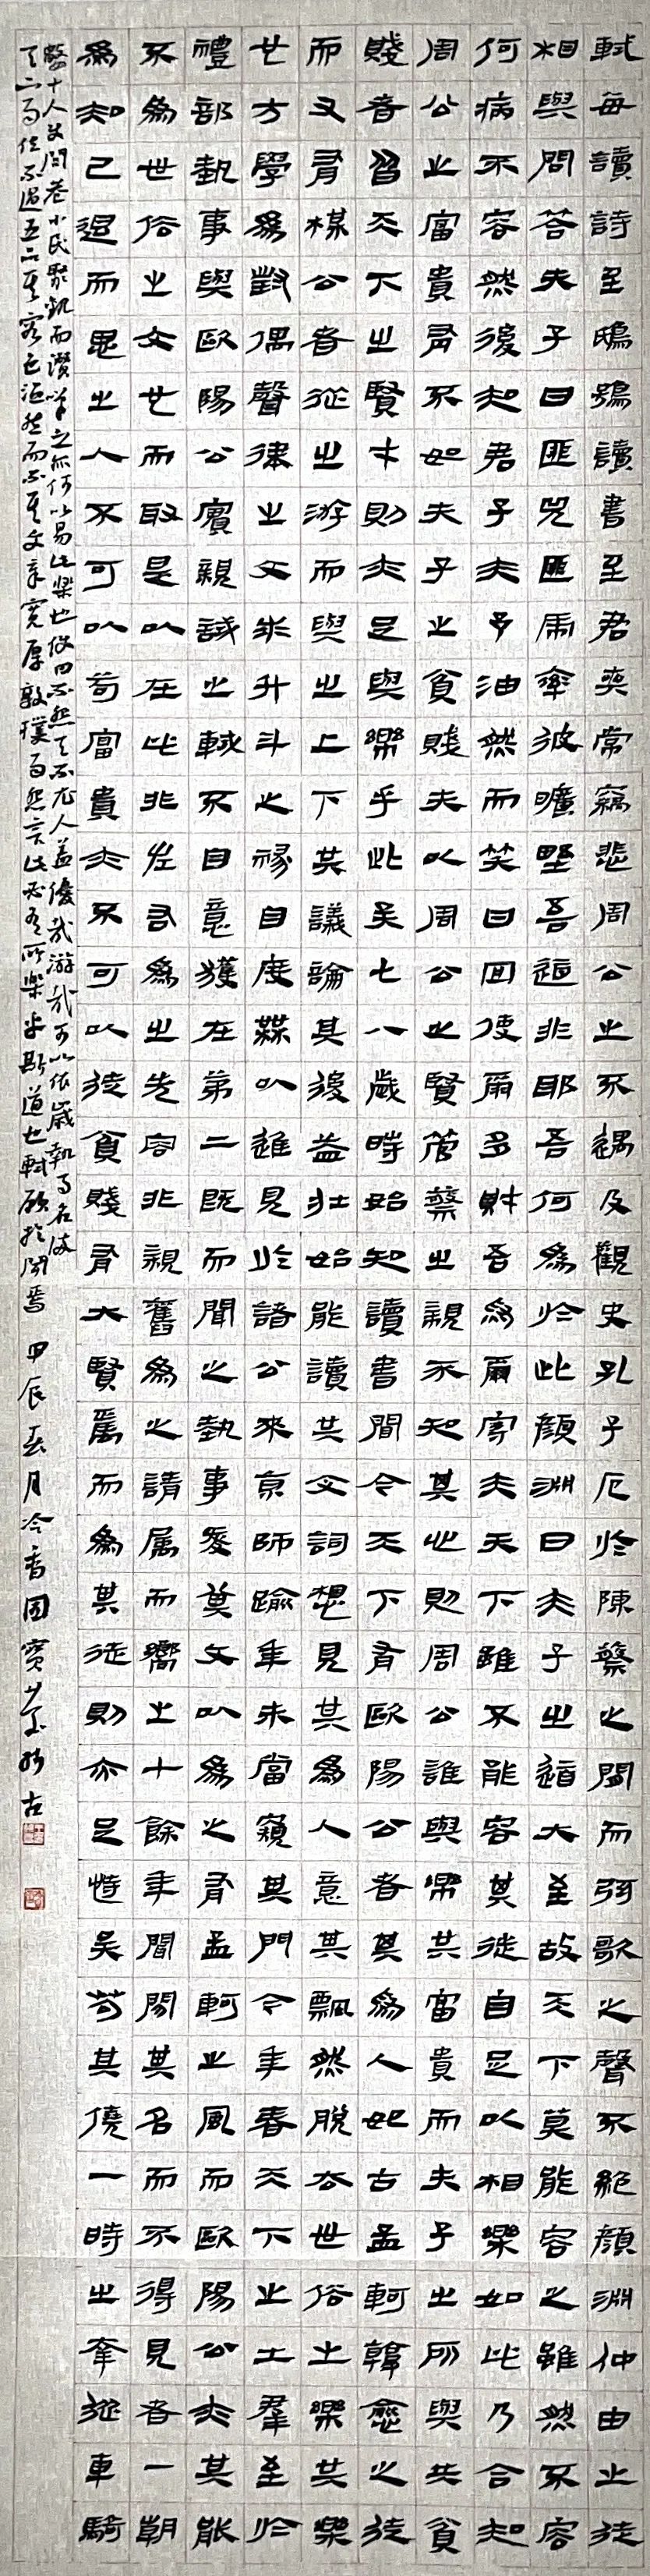 軾每讀詩至鴟鴞讀書至君奭常竊悲周公之不遇及觀史孔子厄於陳蔡之間而弦歌之聲不絕顏淵仲由之徒
相與問答夫子曰匪兕匪虎率彼曠野吾道非耶吾何為於此顏淵曰夫子之道大至故天下莫能容之雖然不容
何病不容然後知君子夫子油然而笑曰回使爾多財吾為爾宰夫天下雖不能容其徒自足以相樂如此乃今知
周公之富貴有不如夫子之貧賤夫以周公之賢管蔡之親不知其心則周公誰與樂其富貴而夫子之所與共貧
賤者皆天下之賢才則亦足與樂乎此矣七八歲時始知讀書聞今天下有歐陽公者其為人如古孟軻韓愈之徒
而又有梅公者從之游而與之上下其議論其後益壯始能讀其文詞想見其為人意其飄然脫去世俗之樂其樂
也方學為對偶聲律之文求升斗之祿自度無以進見於諸公來京師踰年未嘗窺其門今年春天下之士群至於
禮部執事與歐陽公實親試之軾不自意獲在第二既而聞之執事愛其文以為之有孟軻之風而歐陽公亦其能
不為世俗之文也而取是以在此非左右為之先容非親舊為之請屬而嚮之十餘年間聞其名而不得見者一朝
為知己退而思之人不可以苟富貴亦不可以徒貧賤有大賢焉而為其徒則亦足恃矣苟其僥一時之幸從車騎
數十人使閭巷小民聚觀而讚嘆之亦何以易此樂也傳曰不怨天不尤人蓋優哉游哉可以卒歲執事名滿
天下而位不過五品其容色溫然而不怒其文章寬厚敦樸而無怨言此必有所樂乎斯道也軾願與聞焉 甲辰春月冷香國寶